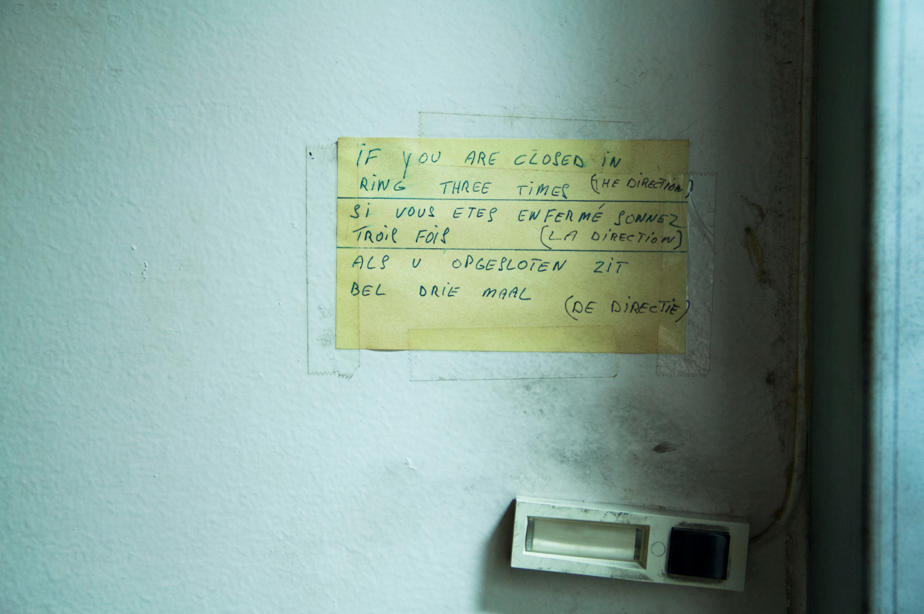 IF YOU ARE CLOSED IN
RING THREE TIMES (THE DIRECTION)
SI VOUS ETES ENFERMÉ SONNEZ
TROIS FOIS (LA DIRECTION)
ALS U OPGESLOTEN ZIT
BEL DRIE MAAL
(DE DIRECTIE)